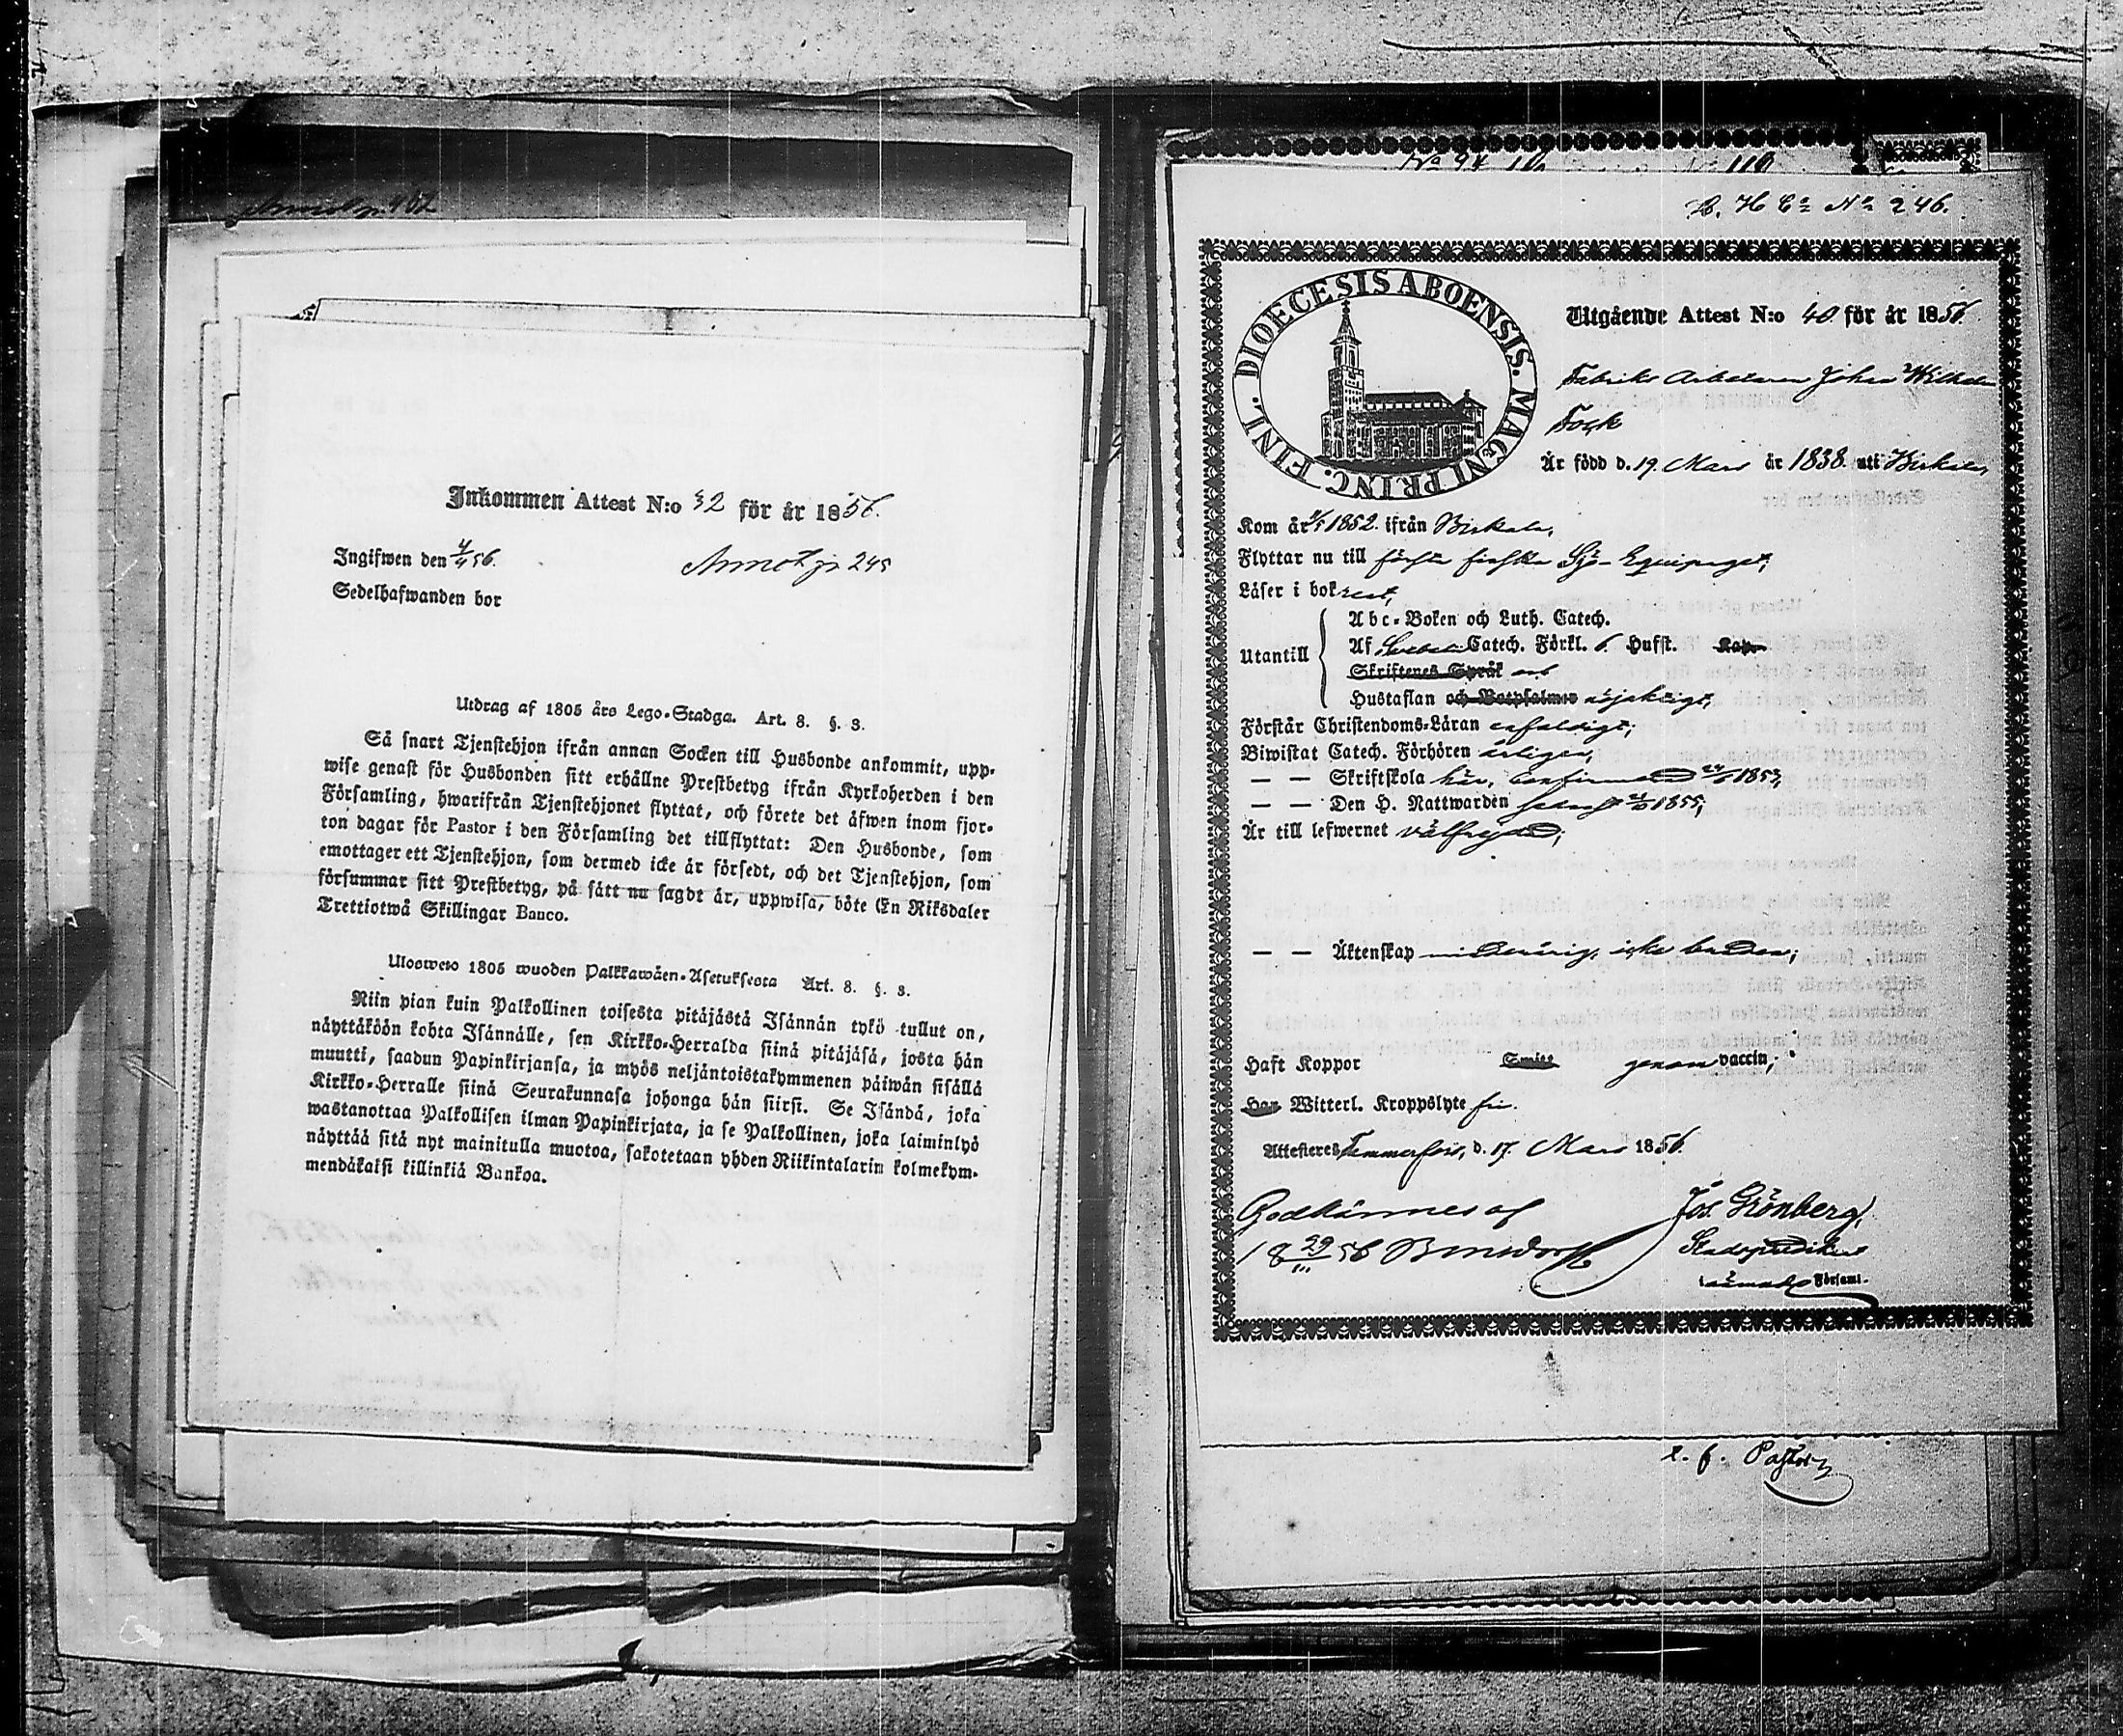 Inkommen Attest N:o 32 för år 1856.
Ingifwen den 4/4 56.
Annot p 245
Sedelhafwanden bor
Utdrag af 1805 års Lego-Stadga. Art. 8. §. 3.
Så snart Tjenstehjon ifrån annan Socken till Husbonde ankommit, upp-
wise genast för Husbonden sitt erhållne Prestbetyg ifrån Kyrkoherden i den
Församling, hwarifrån Tjenstehjonet flyttat, och förete det äfwen inom fjor-
ton dagar för Pastor i den Församling det tillflyttat: Den Husbonde, som
emottager ett Tjenstehjon, som dermed icke är försedt, och det Tjenstehjon, som
försummar sitt Prestbetyg, på sätt nu sagdt är, uppwisa, böte En Riksdaler
Trettiotwå Skillingar Banco.
Ulosweto 1805 wuoden Palkkawäen-Asetuksesta Art. 8. §. 3.
Niin pian kuin Palkollinen toisesta pitäjästä Isännän tykö tullut on,
näyttäköön kohta Isännälle, sen Kirkko-Herralda siinä pitäjäsä, josta hän
muutti, saadun Papinkirjansa, ja myös neljäntoistakymmenen päiwän sisällä
Kirkko-Herralle siinä Seurakunnasa johonga hän siirsi. Se Isändä, joka
wastanottaa Palkollisen ilman Papinkirjata, ja se Palkollinen, joka laiminlyö
näyttää sitä nyt mainitulla muotoa, sakotetaan yhden Riikintalarin kolmekym-
mendäkaisi killinkiä Bankoa.
B. H C: N:o 246.
DIOECESIS ABOENSIS. MAGNI PRINC. FINL.
Utgående Attest N:o 40 för år 1856.
Fabriks Arbetaren Johan Wilhelm
Fock
Är född d. 19. Mars år 1838. uti Birkala,
Kom år 1852. ifrån Birkala,
Flyttar nu till första finska Sjö-Equipaget;
Läser i bok rent,
Utantill
Abc-Boken och Luth. Catech.
Af Svebelii Catech. Förkl. 6. Hufst. Kap.
Skriftenes Språk
Hustaflan och Botpsalmer nöjaktigt,
Förstår Christendoms-Läran enfaldigt;
Biwistat Catech. Förhören årligen,
— — Skriftskola här, Confirmerad 1853,
— — Den H. Nattwarden senast 1855;
Är till lefwernet välfrejdad;
— — Äktenskap minderårig, icke bunden;
Haft Koppor Smitt genom vaccin;
Har Witterl. Kroppslyte fri.
Attesteres Tammerfors, d. 17. Mars 1856.
Godkännes af
18 29/III 56
Jos. Grönberg,
Stadspredikant
Församl.
e. f. Pastor